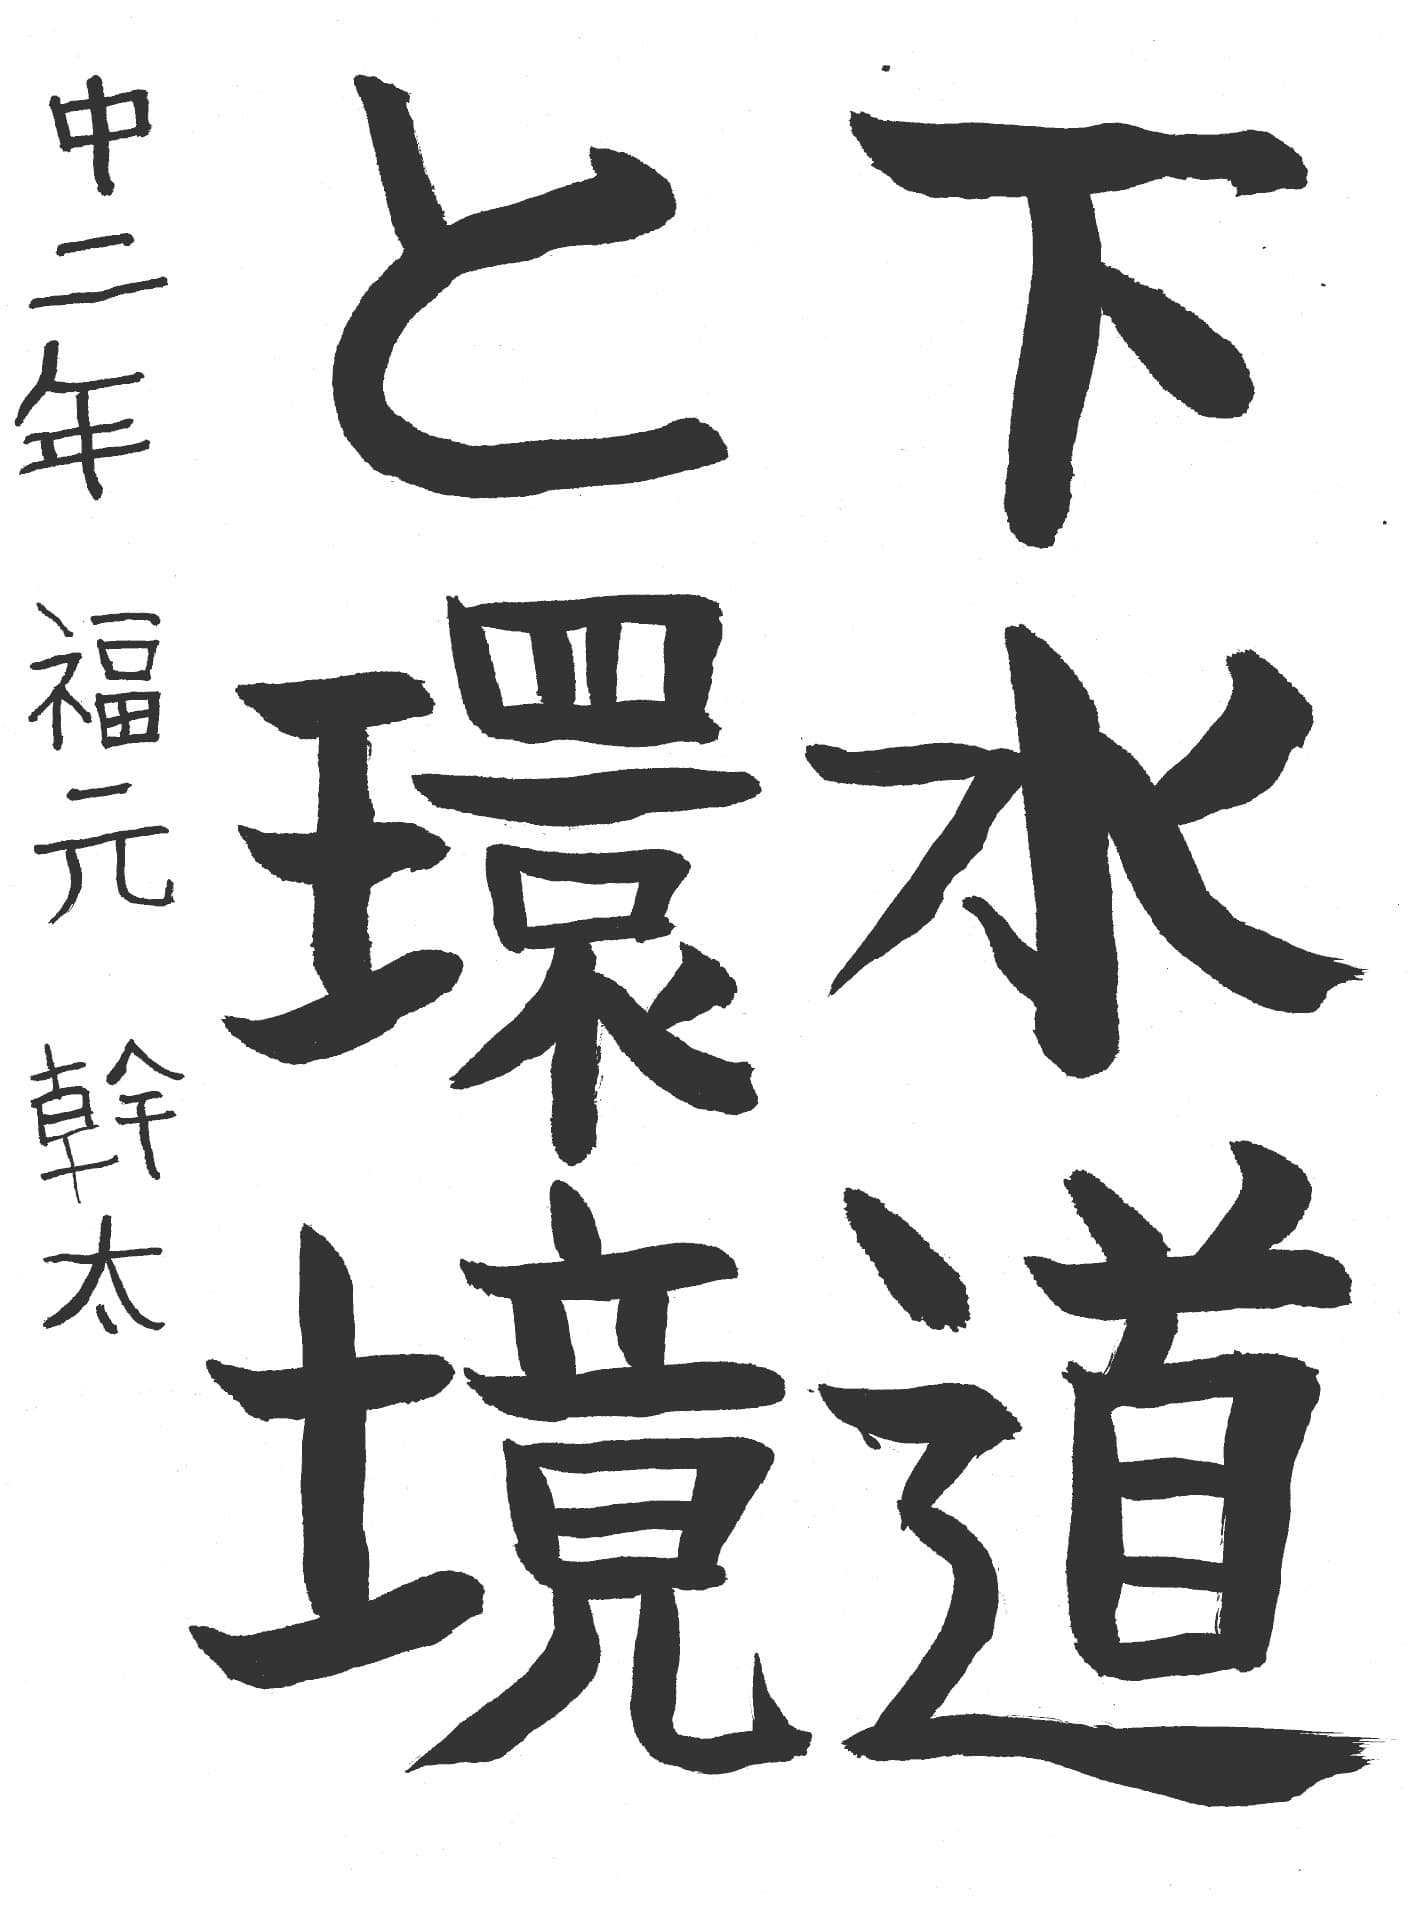 下水道
と環境
中二年 福元 幹太